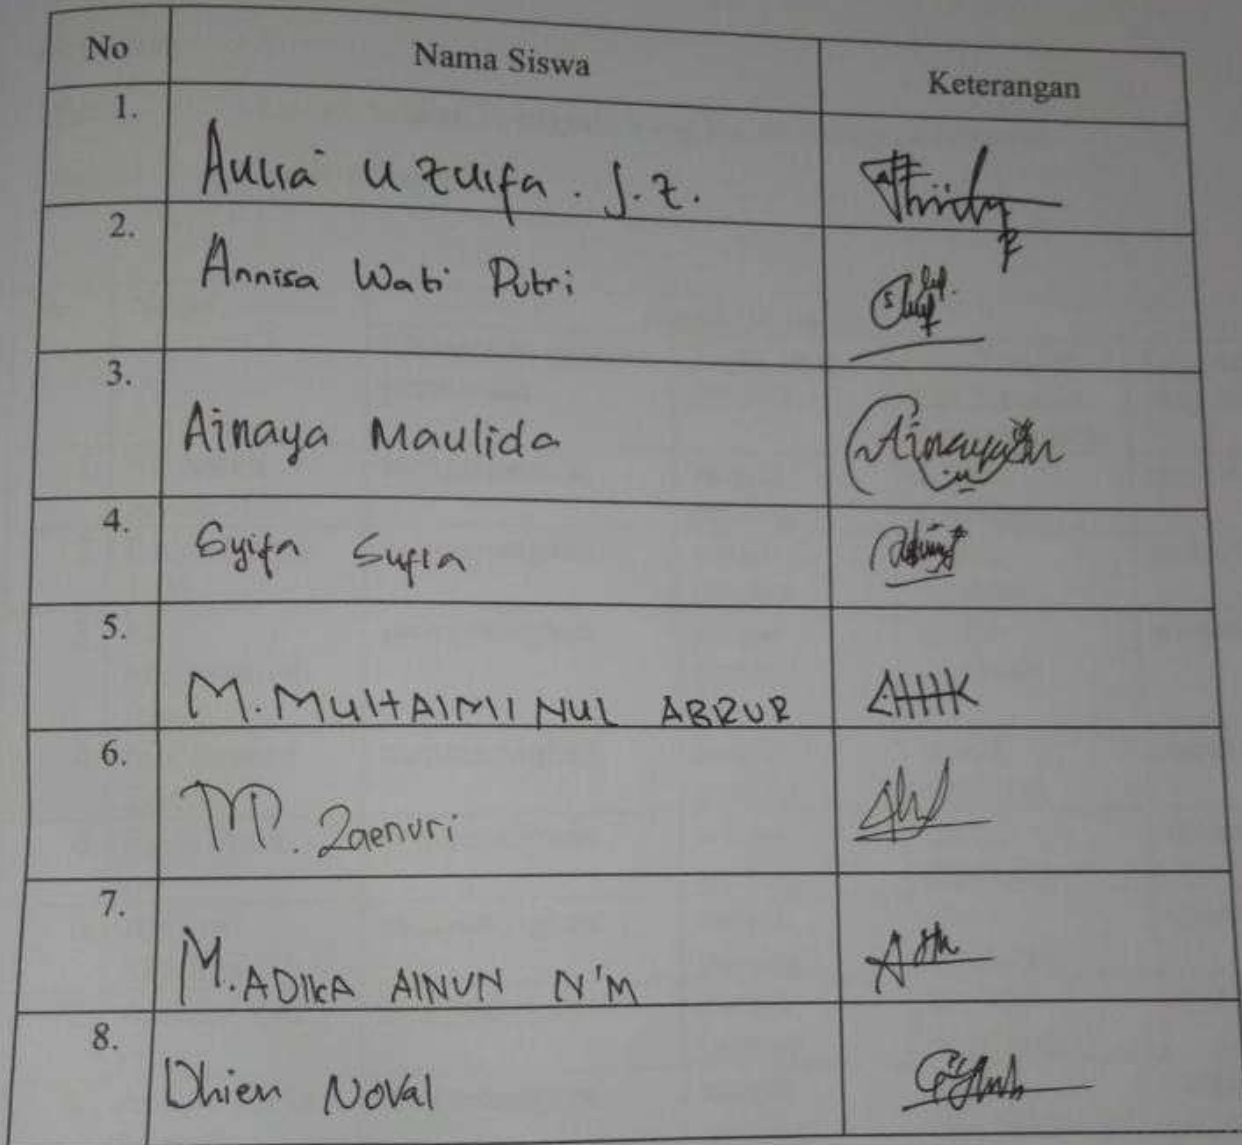 No Nama Siswa Keterangan
1. Aulia U Zulfa . J.Z.
2. Annisa Wati Putri
3. Ainaya Maulida
4. Syifa Sufia
5. M. MUHAIMINUL ABRUR
6. M. Zaenuri
7. M. ADIKA AINUN N'M
8. Dhien Noval